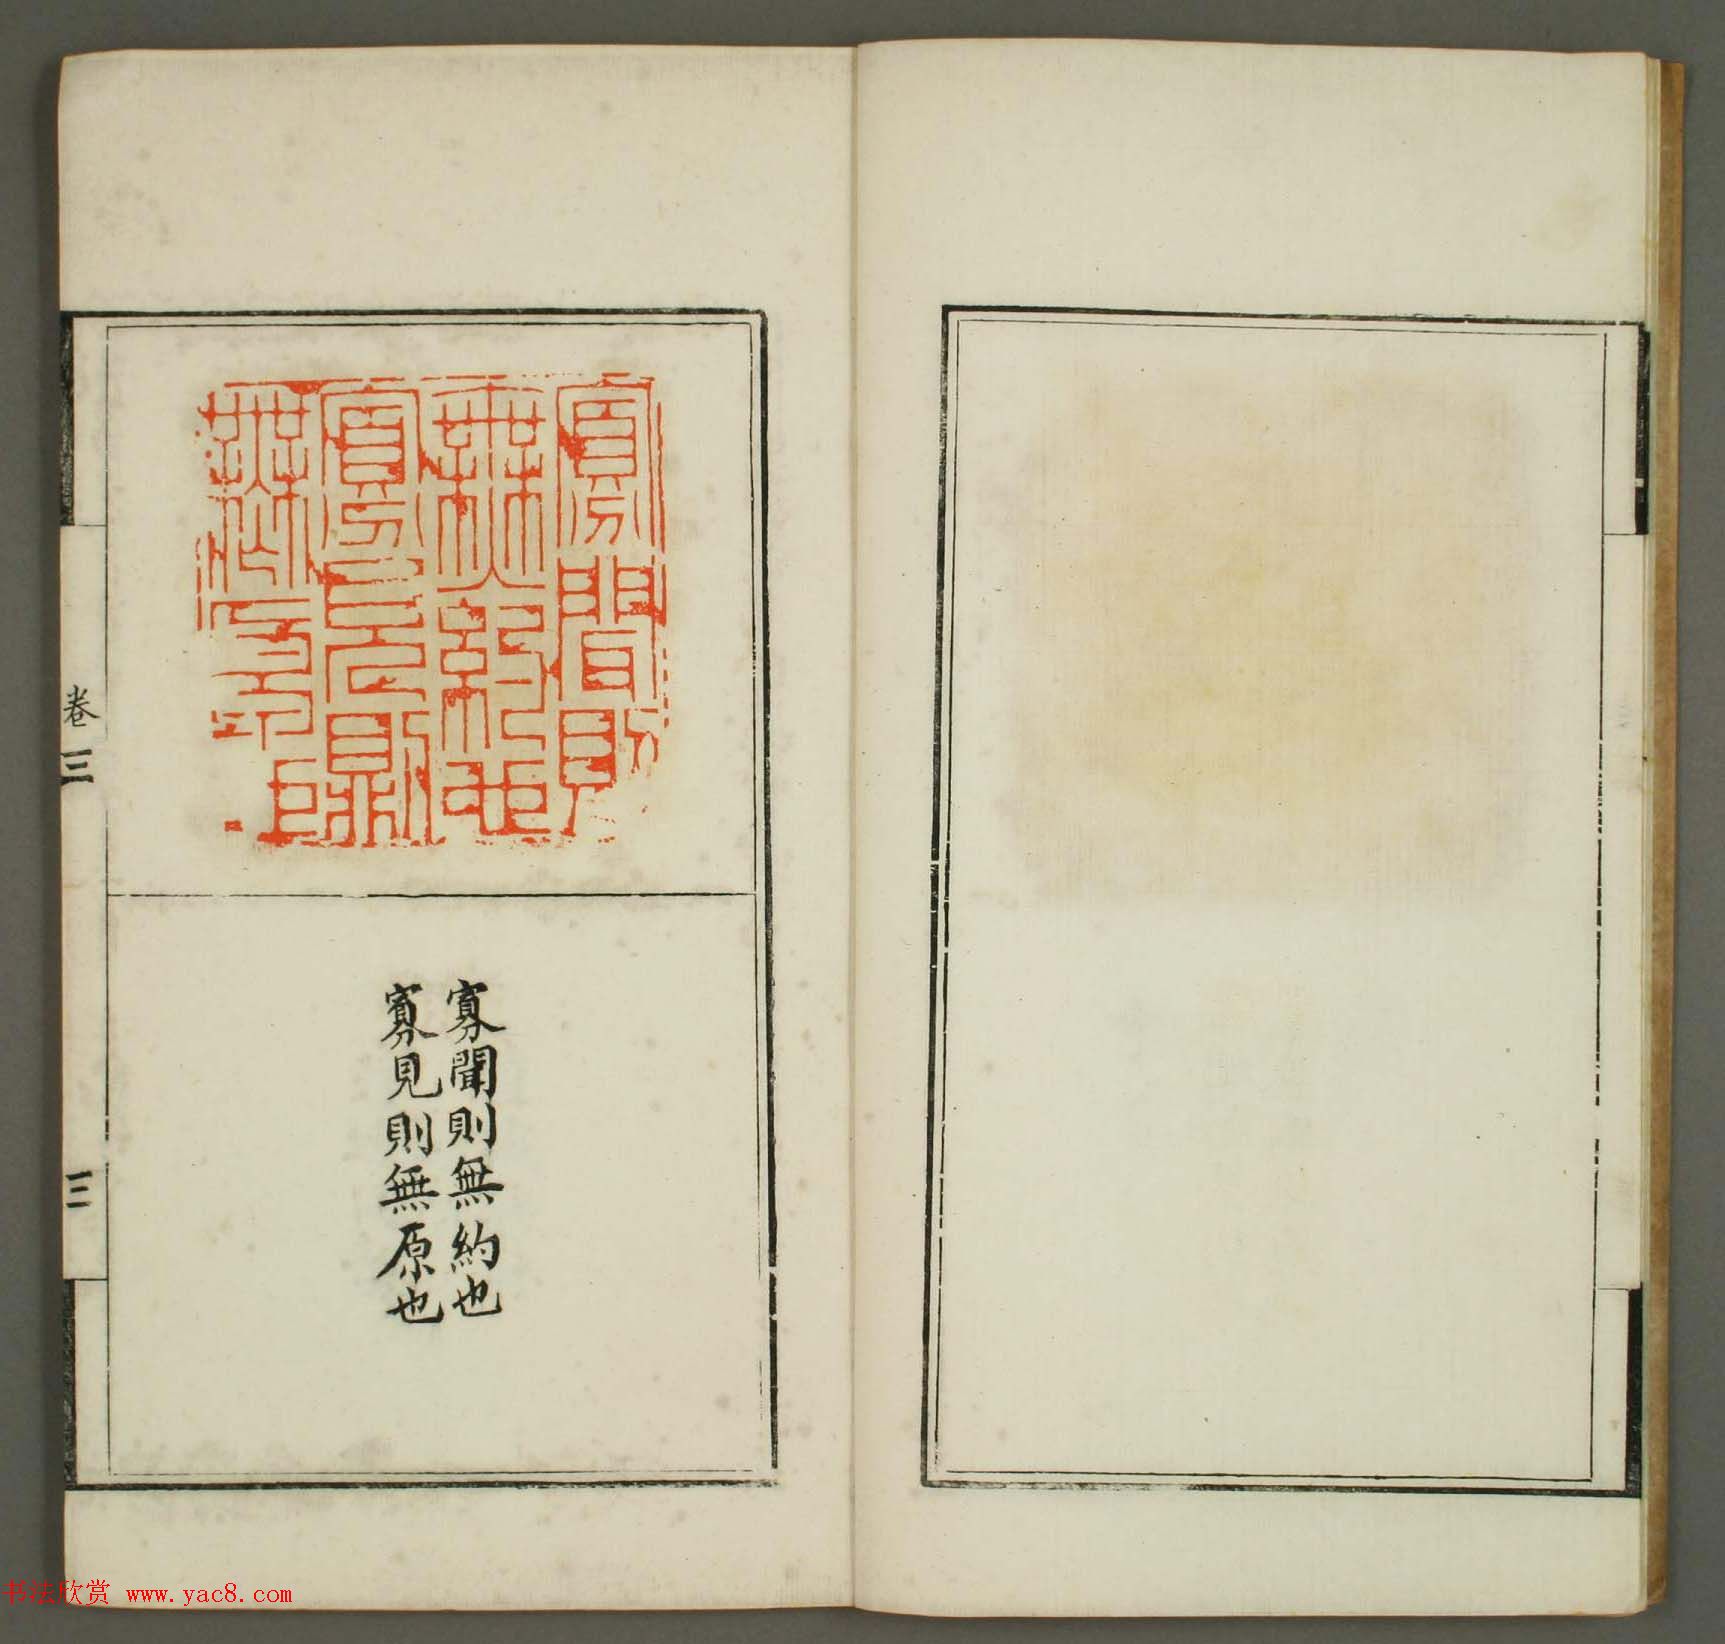 寡聞則
無約也
寡見則
無卓也
寡聞則無約也
寡見則無原也
卷三
三
书法欣赏 www.yac8.com